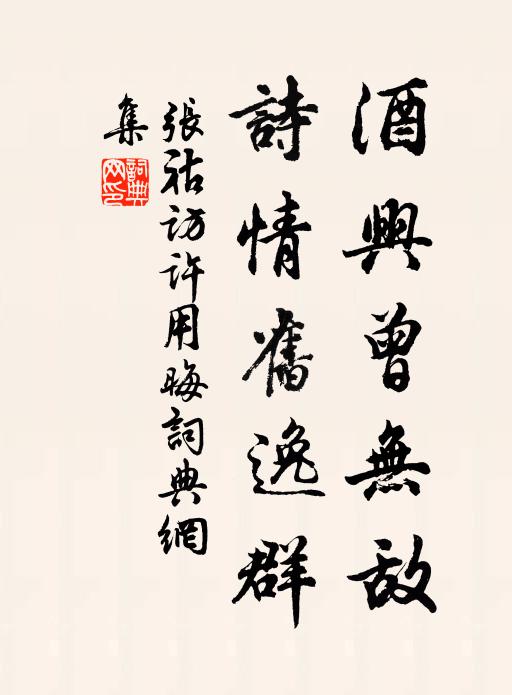 酒興曾無敵
詩情舊逸群
張祜訪許用晦詞典網
集
詞典網印